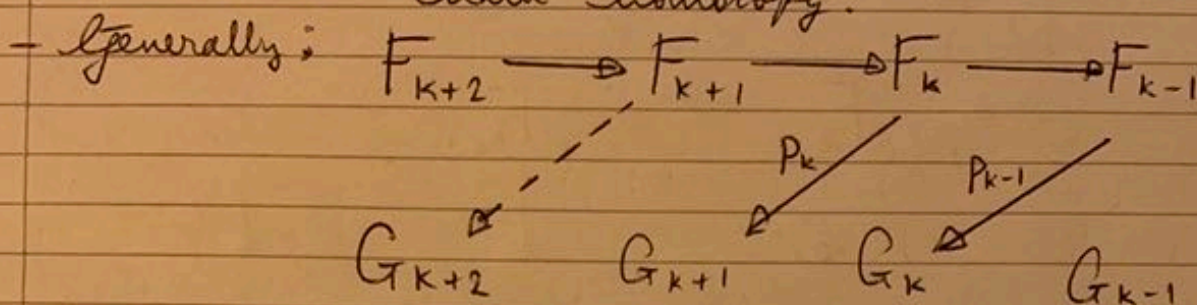 homotopy.
- Generally: F_{k+2} → F_{k+1} → F_k → F_{k-1}
P_k P_{k-1}
G_{k+2} G_{k+1} G_k G_{k-1}